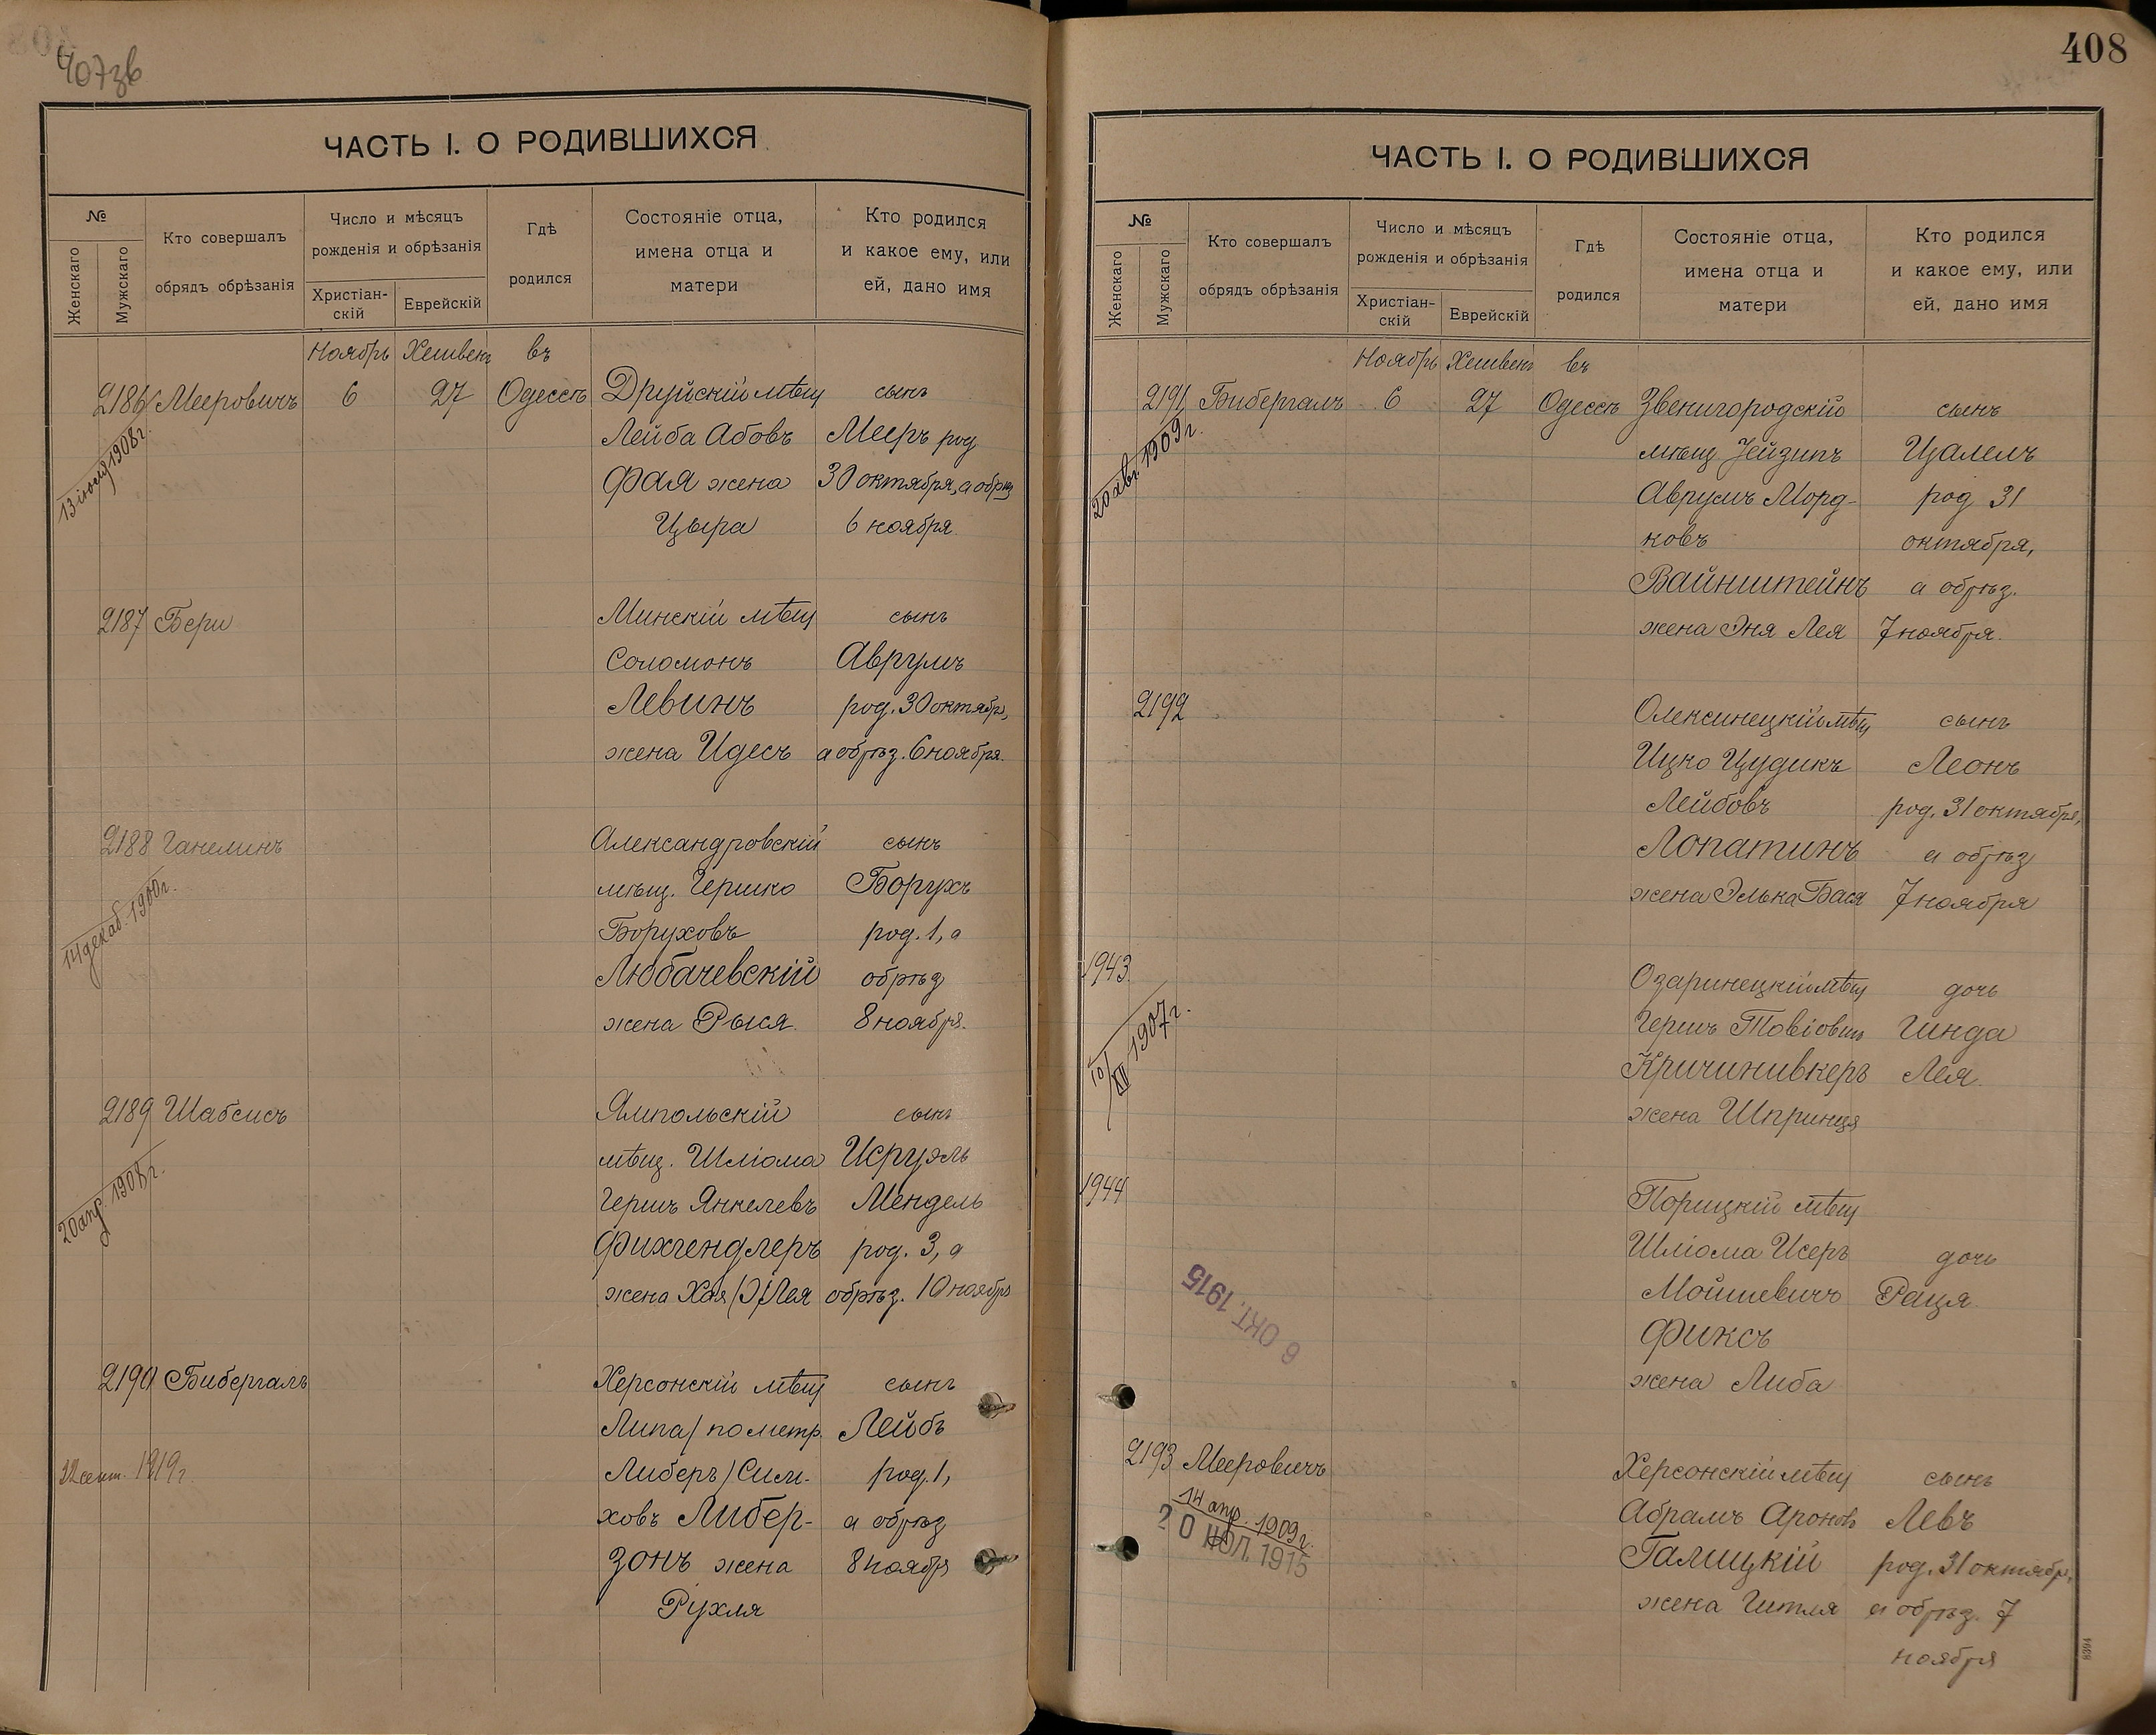 407зв
ЧАСТЬ I. О РОДИВШИХСЯ
№
Женскаго
Мужскаго
Кто совершалъ
обрядъ обрѣзанія
Число и мѣсяцъ
рожденія и обрѣзанія
Христіан-
скій
Еврейскій
Гдѣ
родился
Состояніе отца,
имена отца и
матери
Кто родился
и какое ему, или
ей, дано имя
Ноябрь Хешвенъ въ
2186 Мееровичъ 6 27 Одессѣ Друйскій мѣщ сынъ
13 іюля 1908 г.
Лейба Абовъ Мееръ род
Фая жена 30 октября, а обрѣз
Цыра 6 ноября.
2187 Бери Минскій мѣщ сынъ
Соломонъ Аврумъ
Левинъ род. 30 октября,
жена Идесъ а обрѣз. 6 ноября.
2188 Ганелинъ Александровскій сынъ
14 декаб. 1900 г.
мѣщ. Гершко Борухъ
Боруховъ род. 1, а
Любачевскій обрѣз
жена Рыся 8 ноября.
2189 Шабсисъ Ямпольскій сынъ
20 апр. 1908 г.
мѣщ. Шліома Исруэль
Гершъ Янкелевъ Мендель
Фихгендлеръ род. 3, а
жена Хая (Э) Лея обрѣз. 10 ноября
2190 Бибергалъ Херсонскій мѣщ сынъ
Липа / по метр. Лейбъ
22 сент. 1919 г. Либеръ / Сим- род. 1,
ховъ Либер- а обрѣз
зонъ жена 8 ноября
Рухля
408
ЧАСТЬ I. О РОДИВШИХСЯ
№
Женскаго
Мужскаго
Кто совершалъ
обрядъ обрѣзанія
Число и мѣсяцъ
рожденія и обрѣзанія
Христіан-
скій
Еврейскій
Гдѣ
родился
Состояніе отца,
имена отца и
матери
Кто родился
и какое ему, или
ей, дано имя
Ноябрь Хешвенъ въ
2191 Бибергалъ 6 27 Одессѣ Звенигородскій сынъ
1909 г.
мѣщ Цалелъ
Аврумъ Морд- род 31
ковъ октября,
Вайнштейнъ а обрѣз.
жена Эня Лея 7 ноября.
2192 Олексинецкій мѣщ сынъ
Ицко Цудикъ Леонъ
Лейбовъ род. 31 октября,
Лопатинъ а обрѣз
жена Элька Бася 7 ноября
1943 Озаринецкій мѣщ дочь
10/XII 1907 г.
Гершъ Товіовичъ Гинда
Кричинивкеръ Лея.
жена Шпринця
1944 Порицкій мѣщ
Шліома Исеръ дочь
Мошшевичъ Раця.
Фиксъ
жена Либа
6 ОКТ. 1915
2193 Мееровичъ Херсонскій мѣщ сынъ
14 апр. 1909 г.
20 1915
Абрамъ Ароновъ Левъ
Галицкій род. 31 октября,
жена Гитля а обрѣз. 7
ноября